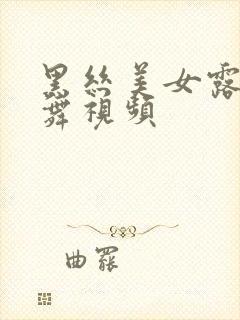 黑丝美女露
舞视频
曲罷